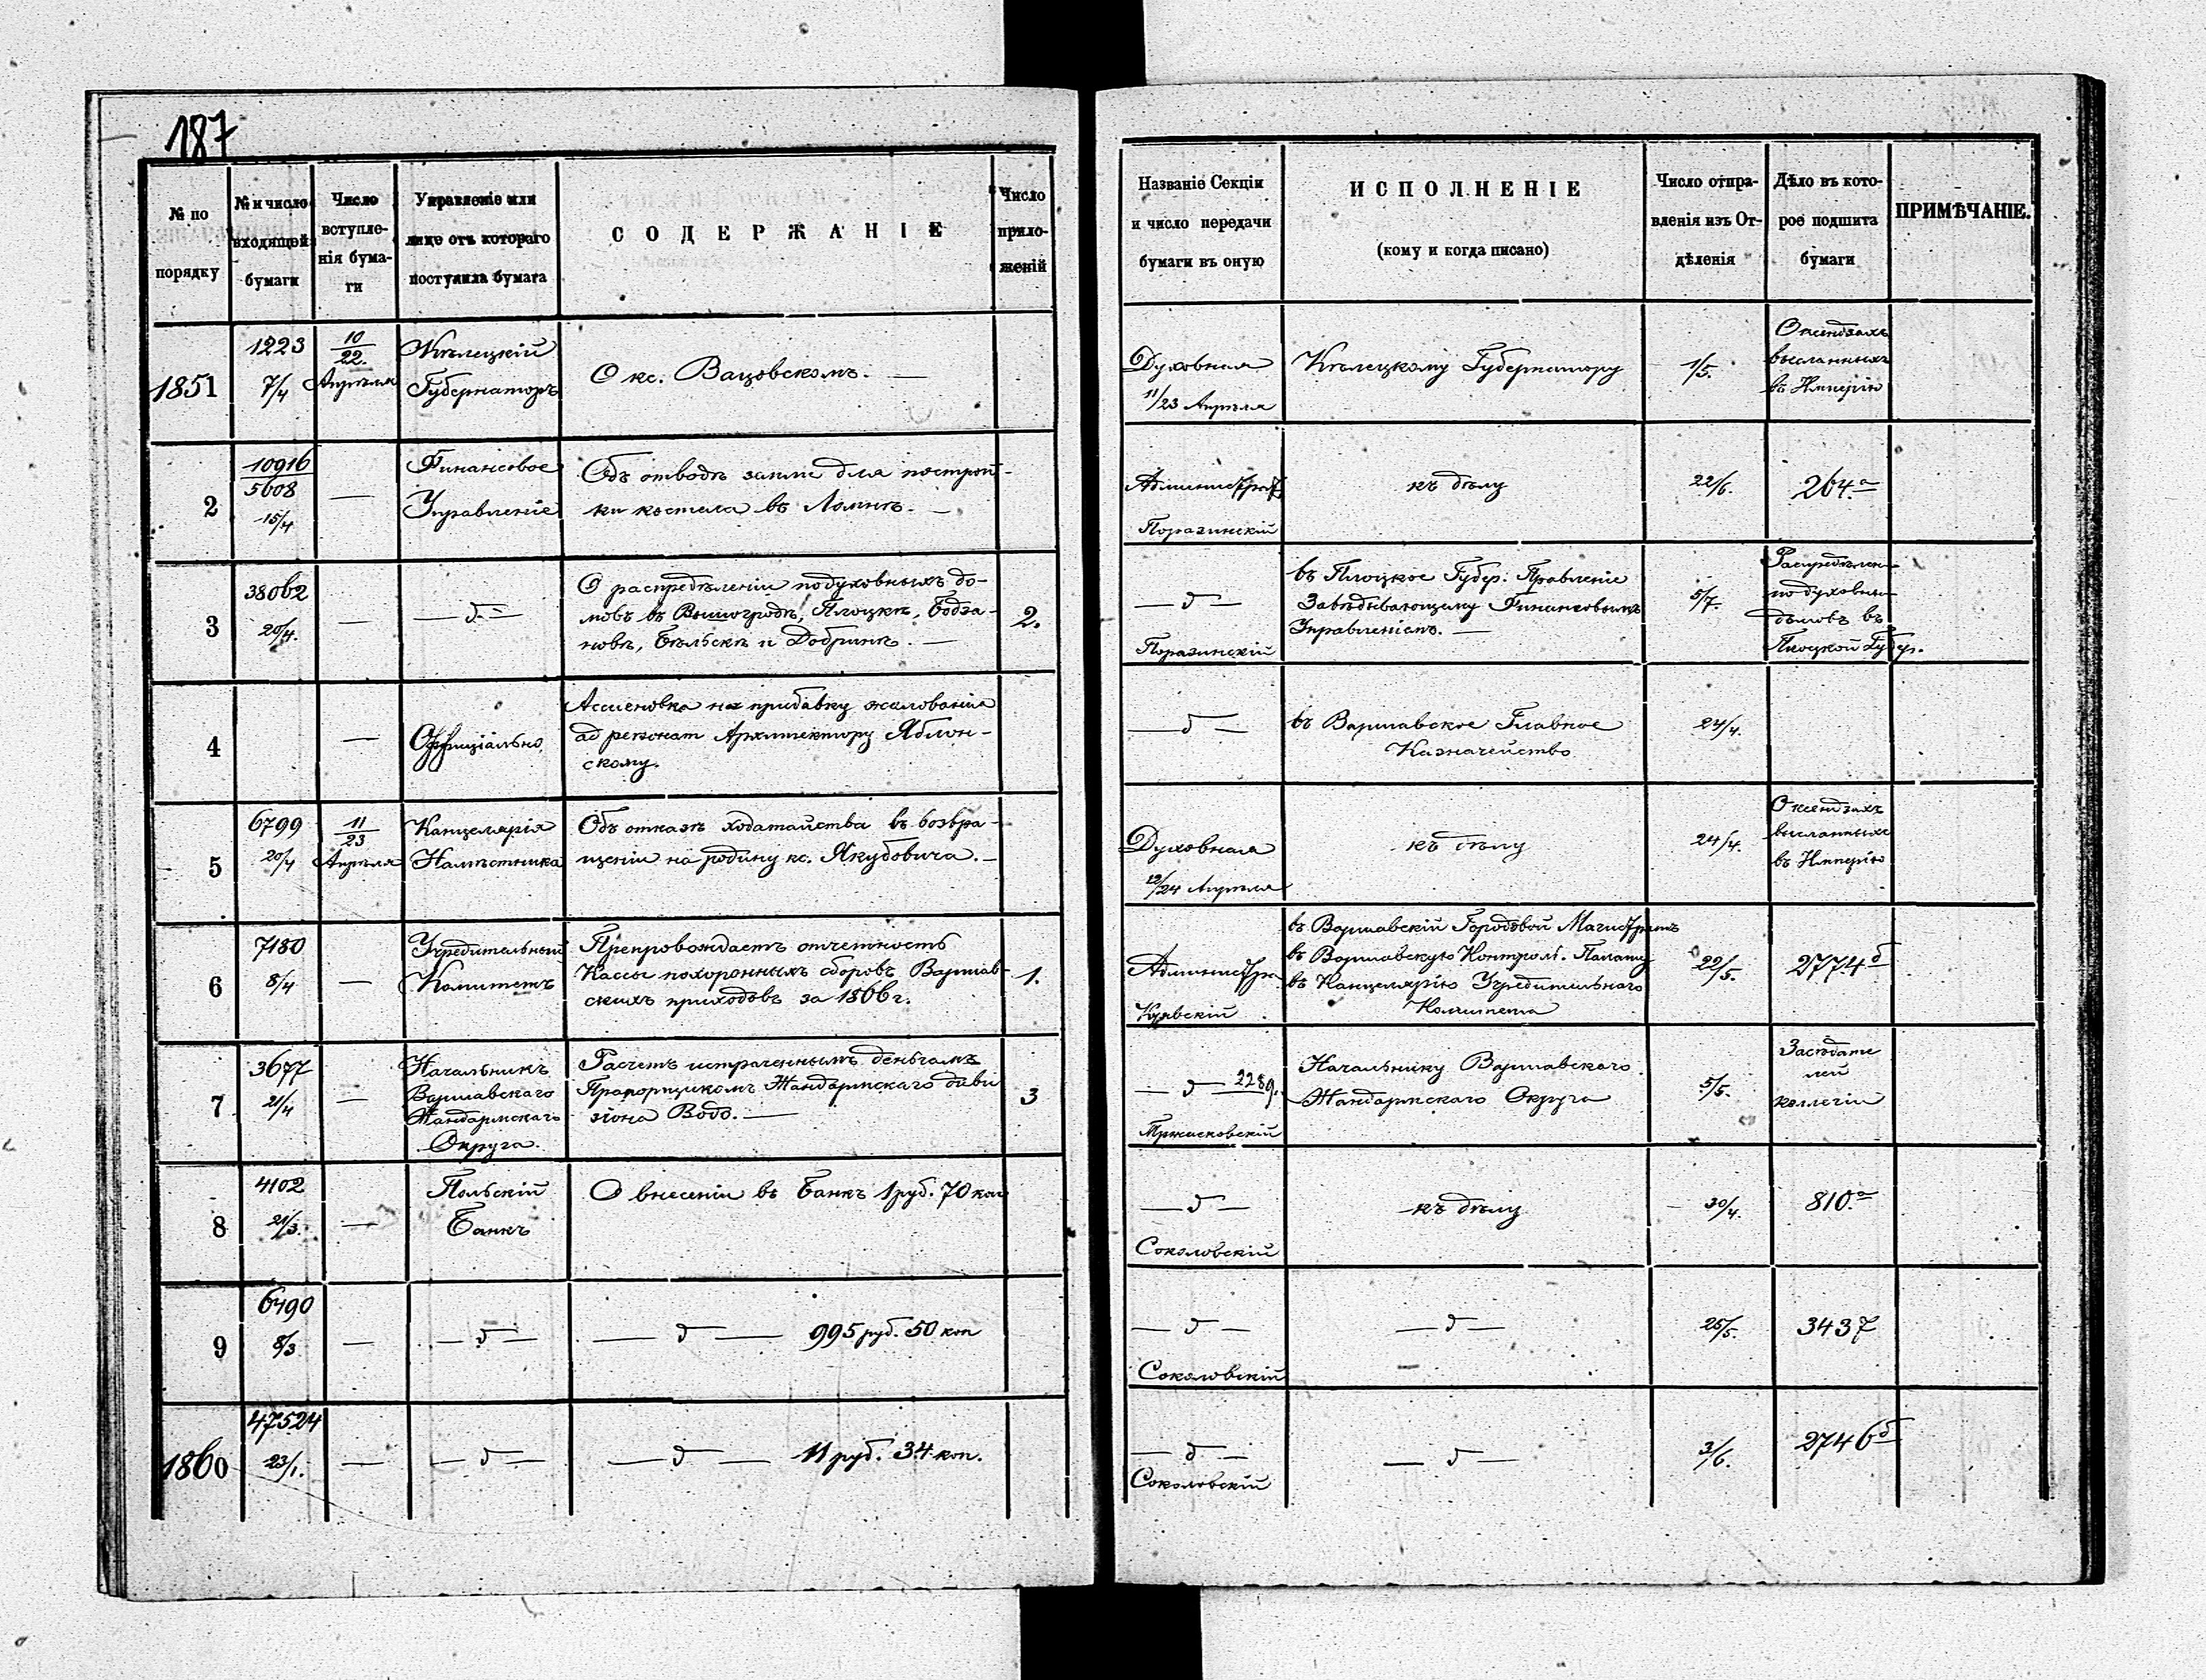 187
№ по порядку
№ и число входящей бумаги
Число вступленія бумаги
Управленіе или лице отъ котораго поступила бумага
СОДЕРЖАНІЕ
Число приложеній
Названіе Секціи и число передачи бумаги въ оную
ИСПОЛНЕНІЕ
(кому и когда писано)
Число отправленія изъ Отдѣленія
Дѣло въ которое подшита бумаги
ПРИМѢЧАНІЕ.
1851
1223
7/4
10/22.
Апрѣля
Кѣлецкій
Губернаторъ
О кс. Вацовскомъ. —
Духовная
11/23 Апрѣля
Кѣлецкому Губернатору
1/5.
О ксендзахъ
высланныхъ
въ Имперію
2
10916
5608
15/4
—
Финансовое
Управленіе
Объ отводѣ земли для построй-
ки костела въ Ломнѣ. —
Поразинскій
къ дѣлу
22/6.
264.а
3
38062
20/4.
—
— д —
О распредѣленіи подуховныхъ до-
мовъ въ Вышогродѣ, Плоцкѣ, Бодза-
новѣ, Бѣльскѣ и Добринѣ. —
2.
— д —
Поразинскій
въ Плоцкое Губер: Правленіе
Завѣдывающему Финансовымъ
Управленіемъ. —
5/7.
Распредѣлен-
подуховны-
домовъ въ
Плоцкой Губер.
4
—
Оффиціально.
Ассиеновка на прибавку жалованія
ад персонам Архитектору Яблон-
скому.
— д —
въ Варшавское Главное
Казначейство
24/4.
5
6799
20/4
11/23
Апрѣля
Канцелярія
Намѣстника
Объ отказѣ ходатайства въ возвра-
щеніи на родину кс. Якубовича. —
Духовная
12/24 Апрѣля
къ дѣлу
24/4.
О ксендзахъ
высланныхъ
въ Имперію
6
7180
8/4
—
Учредительный
Комитетъ
Препровождаетъ отчетность
Кассы похороннымъ сборовъ Варшав-
скихъ приходовъ за 1866 г.
1.
Куявскій
въ Варшавскій Городовой Магистратъ
въ Варшавскую Контрол. Палату
въ Канцелярію Учредительнаго
Комитета
22/5.
2774б
7
3677
21/4
—
Начальникъ
Варшавскаго
Жандармскаго
Округа.
Расчетъ истраченнымъ деньгамъ
Прапорщикомъ Жандармскаго диви
зіона Водо. —
3
— д — 2289.
Начальнику Варшавскаго
Жандармскаго Округа
5/5.
Засѣдате
лей
коллегіи
8
4102
21/3.
—
Польскій
Банкъ
О внесеніи въ Банкъ 1 руб. 70 коп
— д —
Соколовскій
къ дѣлу
30/4.
810.а
9
6490
8/3
—
— д —
— д — 995 руб. 50 коп
— д —
Соколовскій
— д —
25/5.
3437
1860
47524
23/1.
—
— д —
— д — 11 руб. 34 коп.
— д —
Соколовскій
— д —
3/6.
2746б